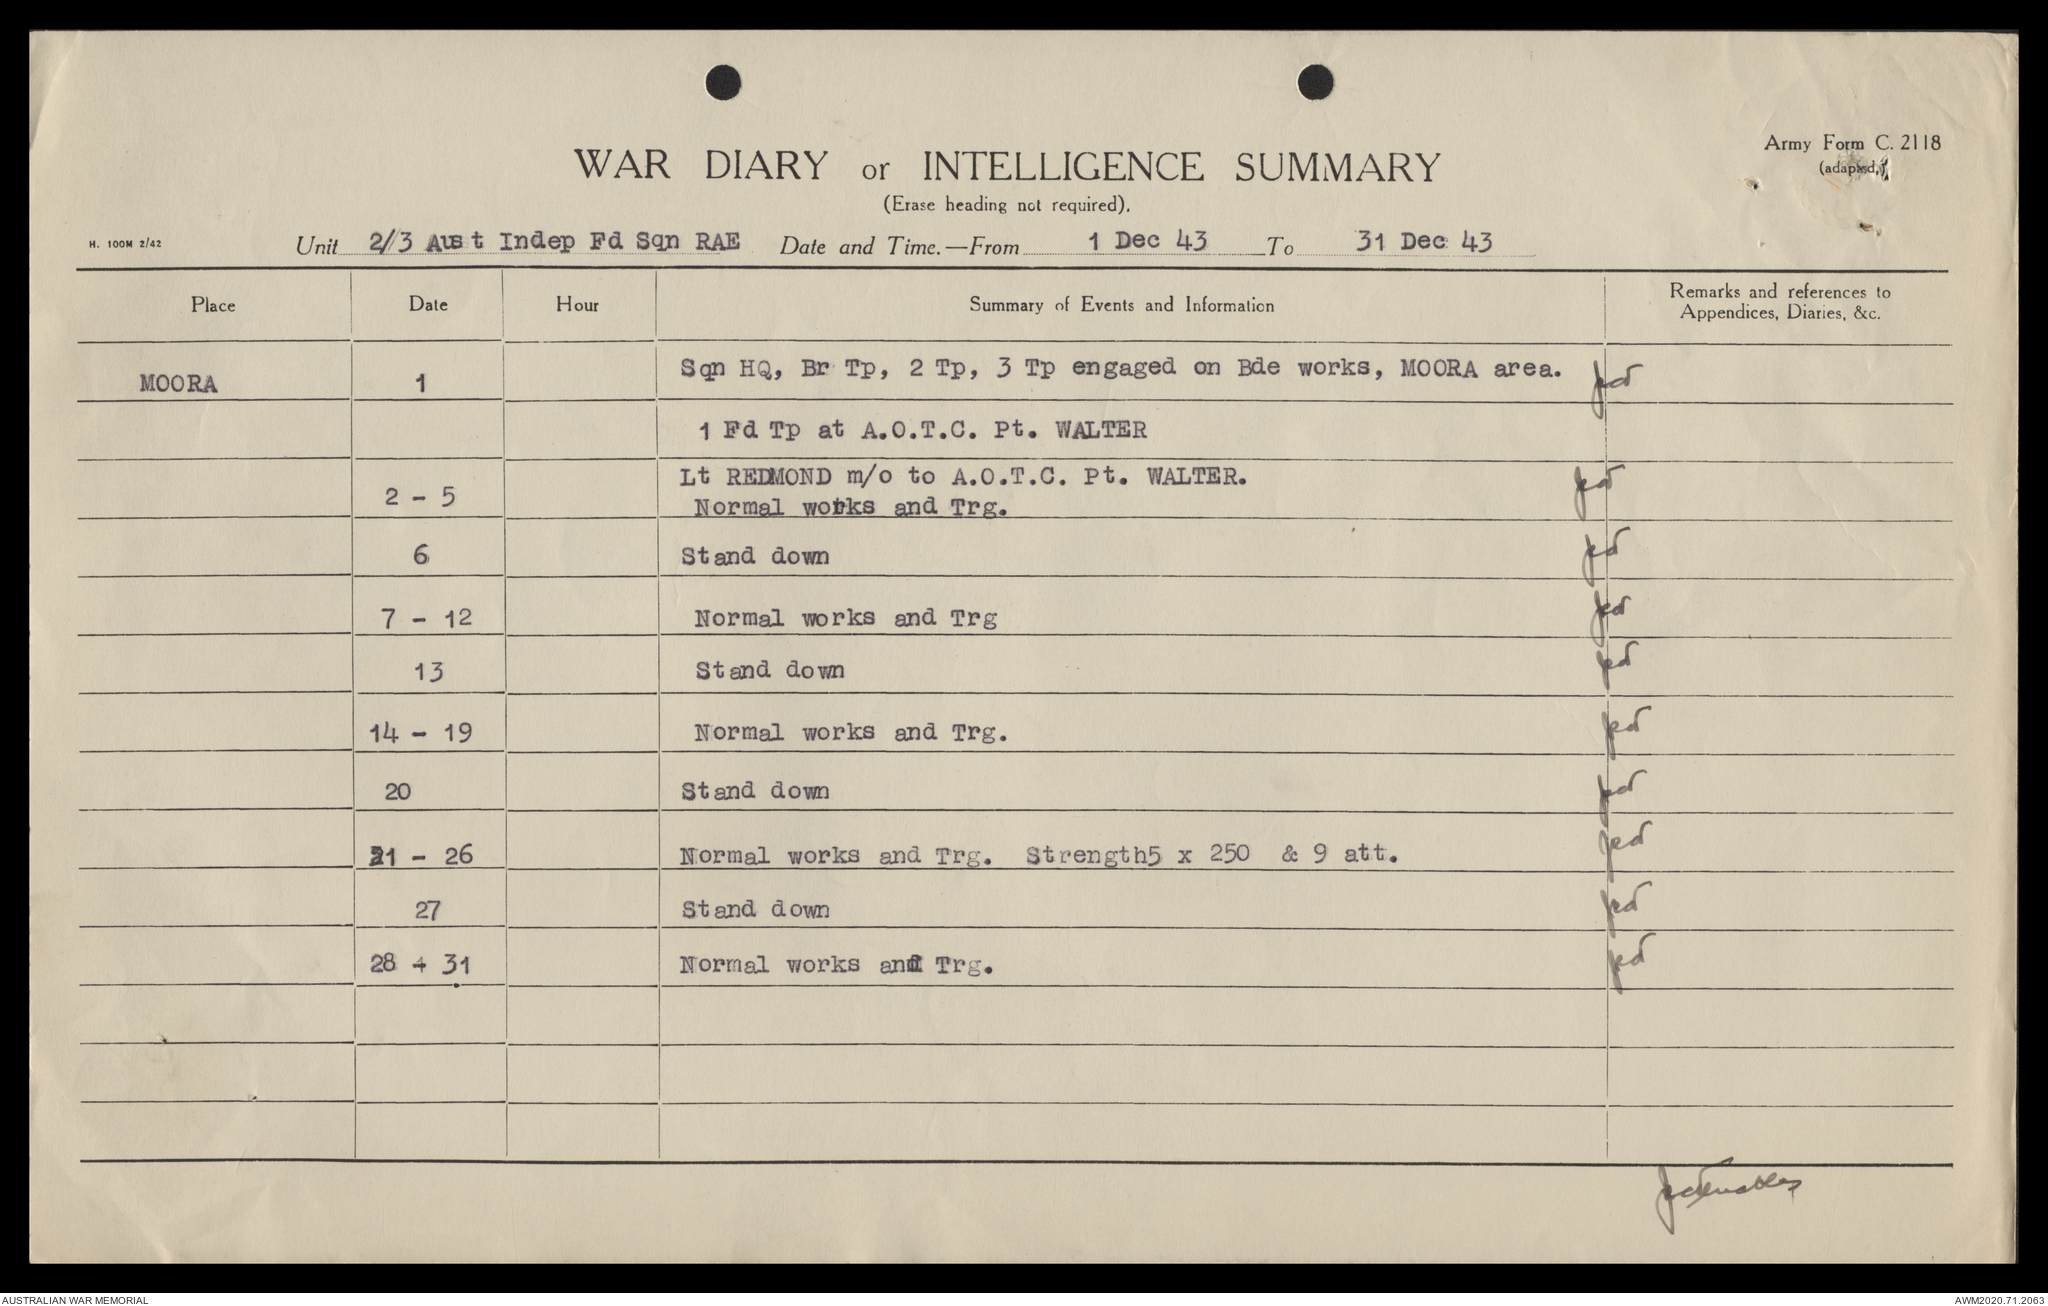 Army Form C. 2118
(adapted.)
WAR DIARY or INTELLIGENCE SUMMARY
(Erase heading not required).
H. 100M 2/42
Unit 2/3 Aust Indep Fd Sqn RAE Date and Time.—From 1 Dec 43 To 31 Dec 43
Place Date Hour Summary of Events and Information Remarks and references to
Appendices, Diaries, &c.
MOORA 1 Sqn HQ, Br Tp, 2 Tp, 3 Tp engaged on Bde works, MOORA area. jed
1 Fd Tp at A.O.T.C. Pt. WALTER
Lt REDMOND m/o to A.O.T.C. Pt. WALTER.
2 - 5 Normal works and Trg. jed
6 Stand down jed
7 - 12 Normal works and Trg jed
13 Stand down jed
14 - 19 Normal works and Trg. jed
20 Stand down jed
21 - 26 Normal works and Trg. Strength5 x 250 & 9 att. jed
27 Stand down jed
28 - 31 Normal works and Trg. jed
AUSTRALIAN WAR MEMORIAL
AWM2020.71.2063